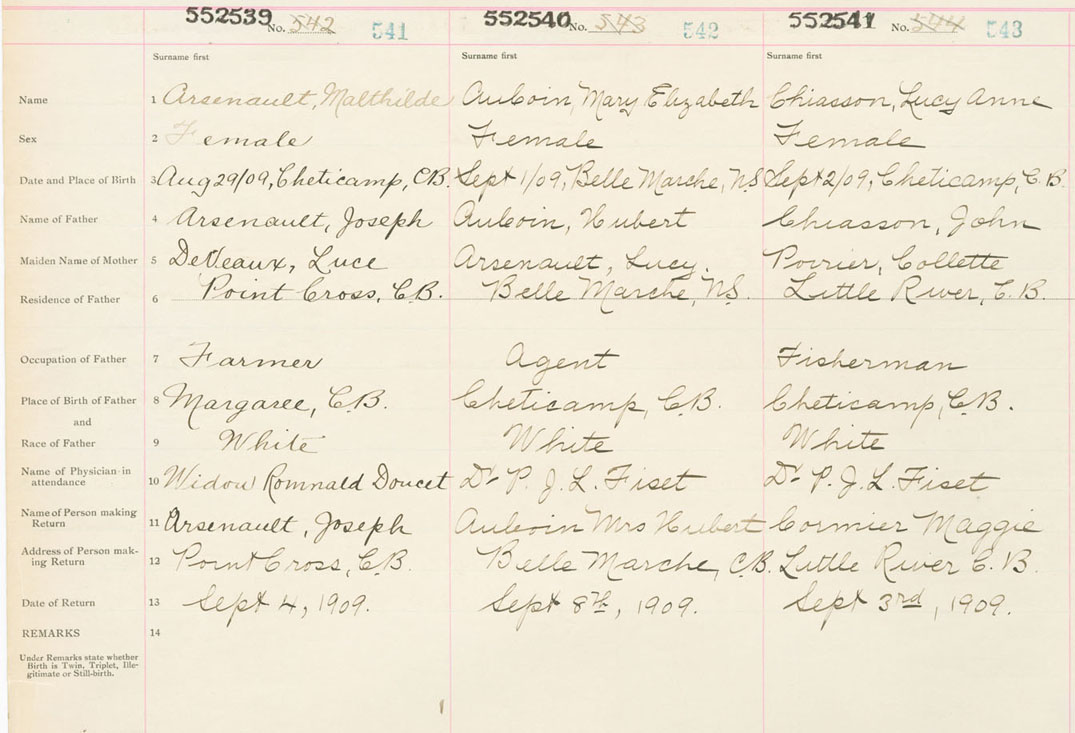 552539 No. 542 541 552540 No. 543 542 552541 No. 544 543
Surname first Surname first Surname first
Name 1 Arsenault, Malthilde AuCoin, Mary Elizabeth Chiasson, Lucy Anne
Sex 2 Female Female Female
Date and Place of Birth 3 Aug 29/09, Cheticamp, C.B. Sept 1/09, Belle Marche, N.S. Sept 2/09, Cheticamp, C.B.
Name of Father 4 Arsenault, Joseph AuCoin, Hubert Chiasson, John
Maiden Name of Mother 5 DeVeaux, Luce Arsenault, Lucy. Poirier, Collette
Residence of Father 6 Point Cross, C.B. Belle Marche, N.S. Little River, C.B.
Occupation of Father 7 Farmer Agent Fisherman
Place of Birth of Father 8 Margaree, C.B. Cheticamp, C.B. Cheticamp, C.B.
and
Race of Father 9 White White White
Name of Physician in
attendance 10 Widow Romnald Doucet Dr P. J. L. Fiset Dr P. J. L. Fiset
Name of Person making
Return 11 Arsenault, Joseph AuCoin Mrs Hubert Cormier Maggie
Address of Person mak-
ing Return 12 Point Cross, C.B. Belle Marche, C.B. Little River C.B.
Date of Return 13 Sept 4, 1909. Sept 8th, 1909. Sept 3rd, 1909.
REMARKS 14
Under Remarks state whether
Birth is Twin, Triplet, Ille-
gitimate or Still-birth.